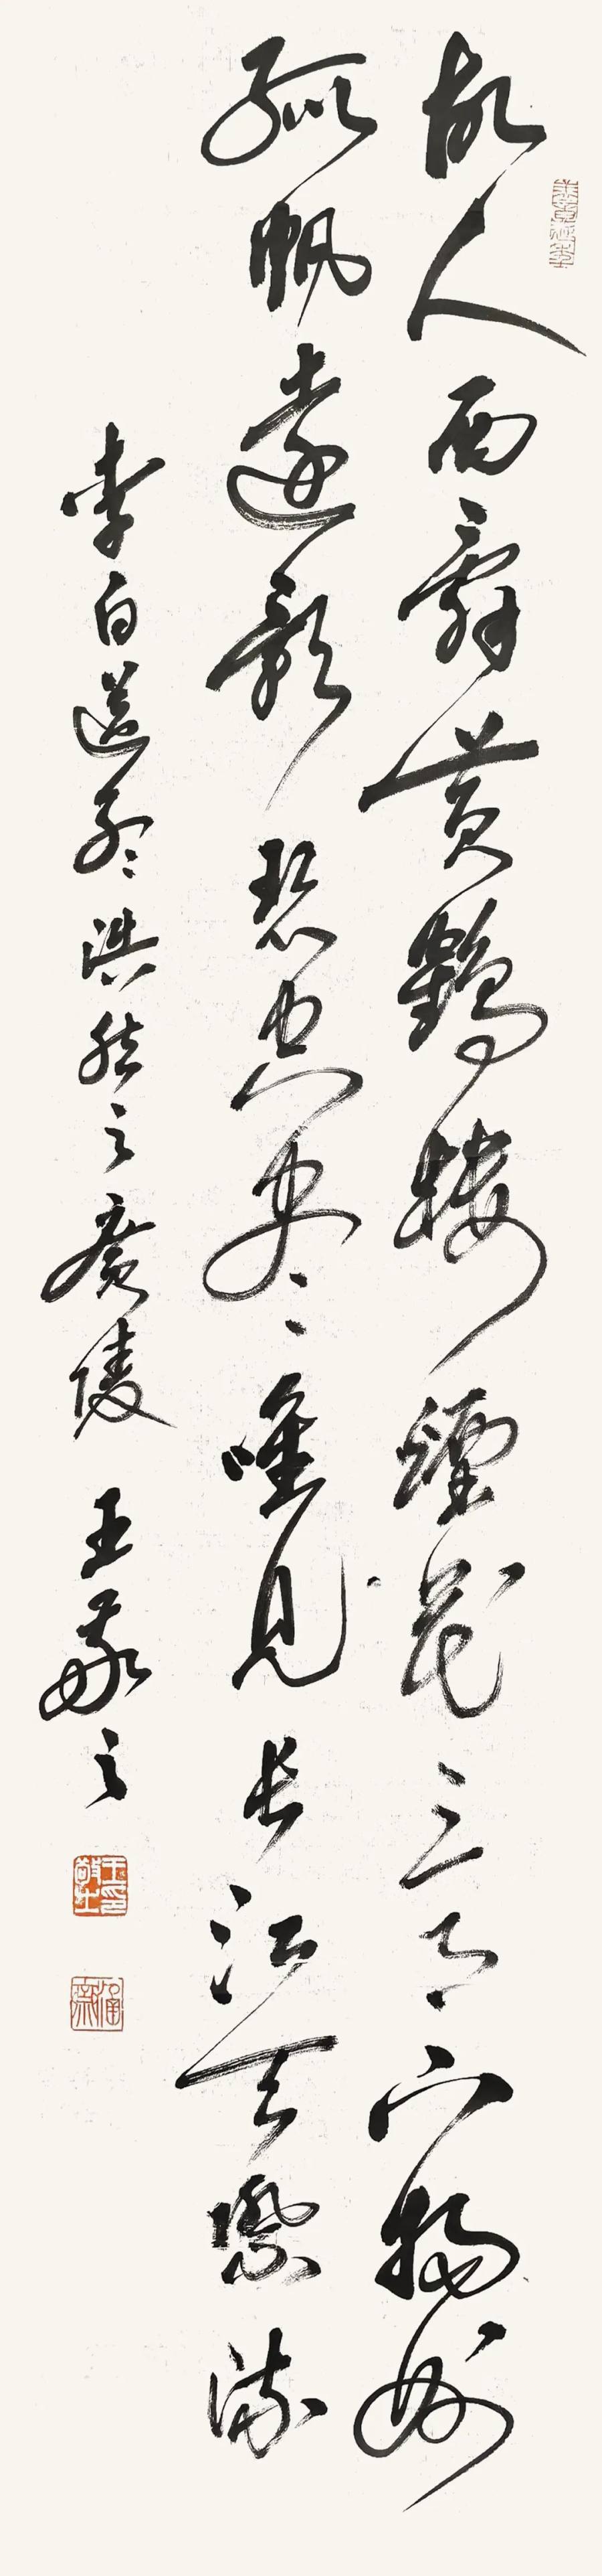 故人西辭黃鶴樓煙花三月下揚州
孤帆遠影碧空尽唯見長江天際流
李白送孟浩然之廣陵 王敬之
王印敬之